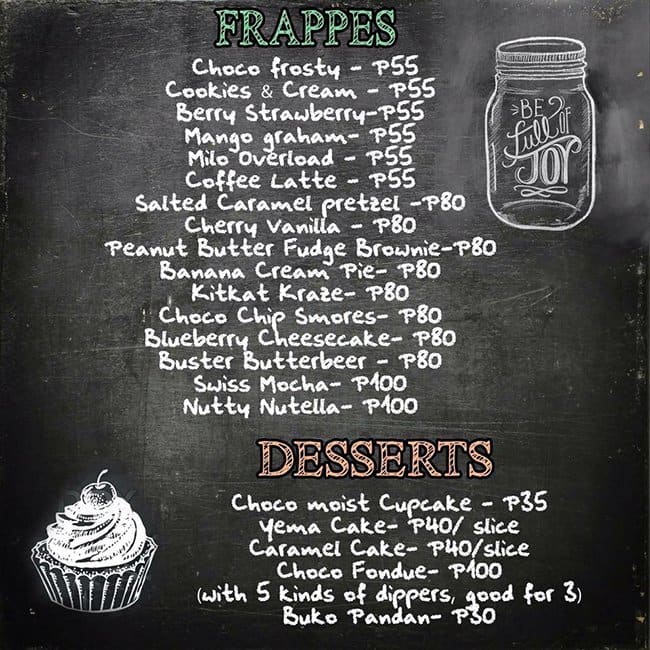 FRAPPES
Choco frosty - ₱55
Cookies & Cream - ₱55
Berry Strawberry-₱55
Mango graham- ₱55
Milo Overload - ₱55
Coffee Latte - ₱55
Salted Caramel pretzel -₱80
Cherry Vanilla - ₱80
Peanut Butter Fudge Brownie-₱80
Banana Cream Pie- ₱80
Kitkat Kraze- ₱80
Choco Chip Smores- ₱80
Blueberry Cheesecake- ₱80
Buster Butterbeer - ₱80
Swiss Mocha- ₱100
Nutty Nutella- ₱100
BE
full OF
JOY
DESSERTS
Choco moist Cupcake - ₱35
Yema Cake- ₱40/ slice
Caramel Cake- ₱40/slice
Choco Fondue- ₱100
(with 5 kinds of dippers, good for 3)
Buko Pandan- ₱30